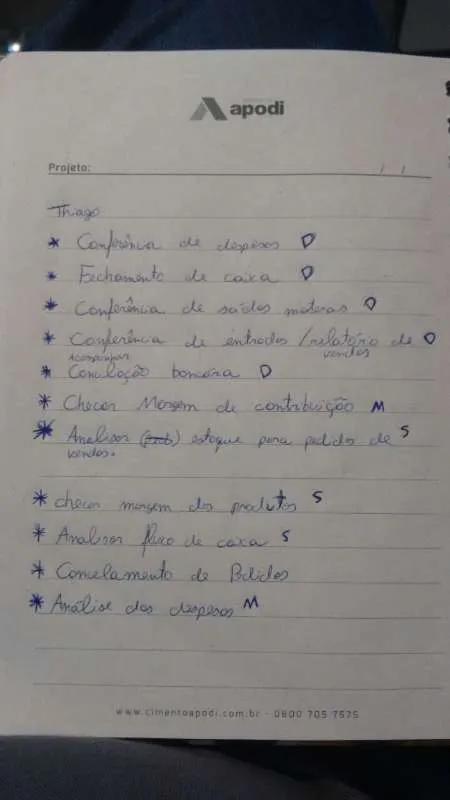 apodi
Projeto: / /
Thiago
* Conferência de despesas D
* Fechamento de caixa D
* Conferência de saídas D
* Conferência de entradas / relatório de D
vendas
Acompanhar
* Conciliação bancária D
* Checar Margem de contribuição M
* Analisar estoque para pedidos de S
vendas.
* checar margem dos produtos S
* Analisar fluxo de caixa S
* Cancelamento de Pedidos
* Análise das despesas M
www.cimentoapodi.com.br - 0800 705 7575